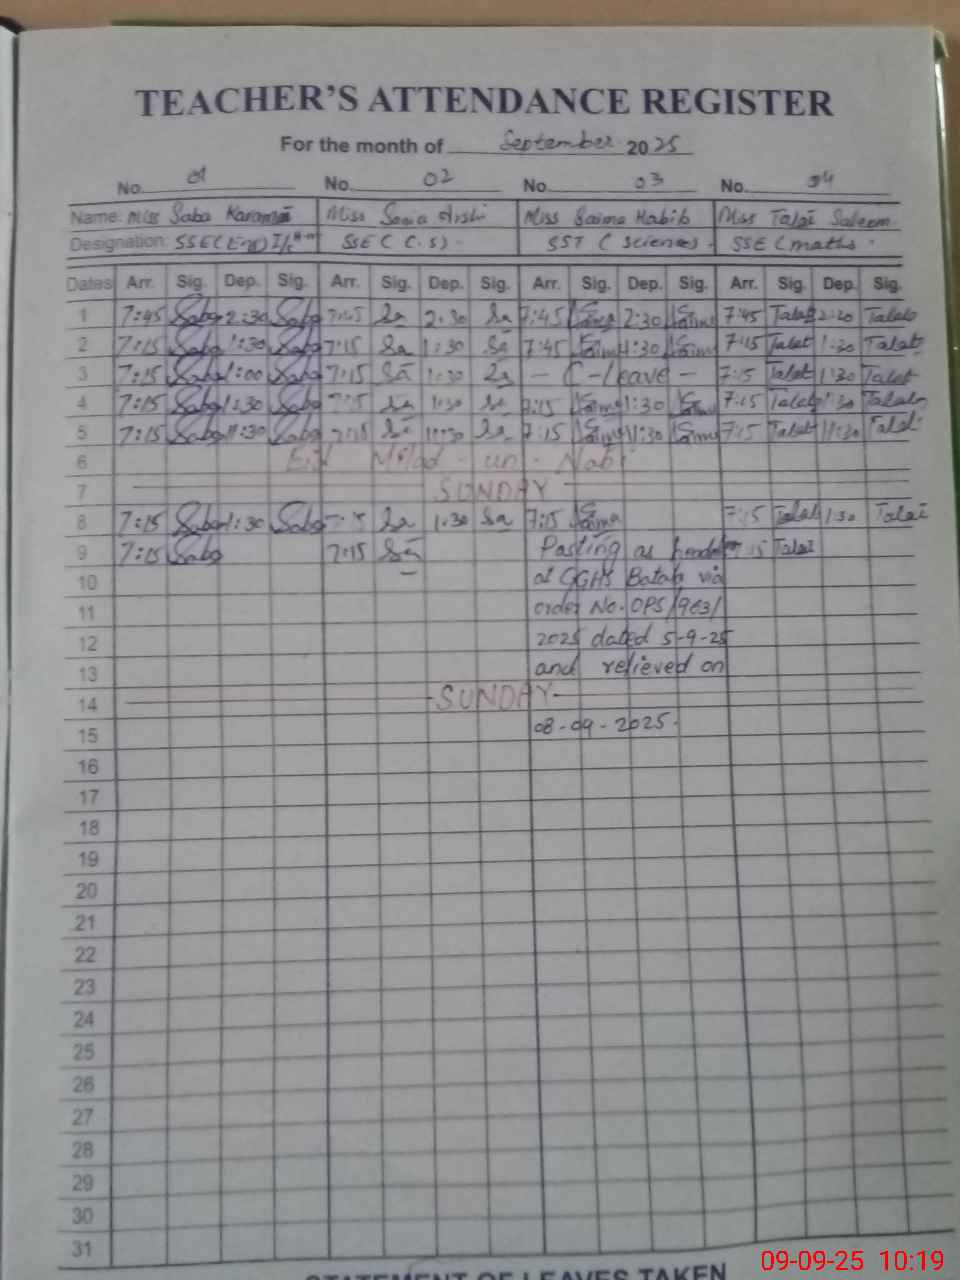 TEACHER'S ATTENDANCE REGISTER
For the month of September 2025
No. 01 No. 02 No. 03 No. 04
Name: Miss Saba Miss Miss Saima Habib Miss Saleem
Designation: SSE (Eng) SSE (C.S) SST (Science) SSE (maths)
Dates Arr. Sig. Dep. Sig. Arr. Sig. Dep. Sig. Arr. Sig. Dep. Sig. Arr. Sig. Dep. Sig.
1 7:45 Saba 2:30 Saba 7:45 Sa 2:30 Sa 7:45 Saima 2:30 Saima 7:45 Talat 2:30 Talat
2 7:15 Saba 1:30 Saba 7:15 Sa 1:30 Sa 7:45 Saima 1:30 Saima 7:15 Talat 1:30 Talat
3 7:15 Saba 1:00 Saba 7:15 Sa 1:30 Sa - C-Leave - 7:15 Talat 1:30 Talat
4 7:15 Saba 1:30 Saba 7:15 Sa 1:30 Sa 7:15 Saima 1:30 Saima 7:15 Talat 1:30 Talat
5 7:15 Saba 11:30 Saba 7:15 Sa 11:30 Sa 7:15 Saima 11:30 Saima 7:15 Talat 11:30 Talat
6 Eid Milad-un-Nabi
7 SUNDAY
8 7:15 Saba 1:30 Saba 7:15 Sa 1:30 Sa 7:15 Saima 7:15 Talat 1:30 Talat
9 7:15 Saba 7:15 Sa Posting as 7:15 Talat
10 at GGHS via
11 order No. OPS/963/
12 2025 dated 5-9-25
13 and relieved on
14 SUNDAY
15 08-09-2025.
16
17
18
19
20
21
22
23
24
25
26
27
28
29
30
31
STATEMENT OF LEAVES TAKEN
09-09-25 10:19